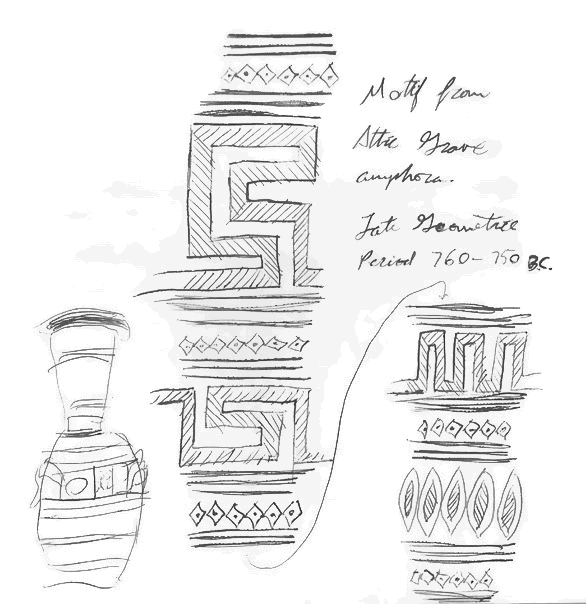 Motif from
Attic Grave
amphora.
Late Geometric
Period 760-750 B.C.